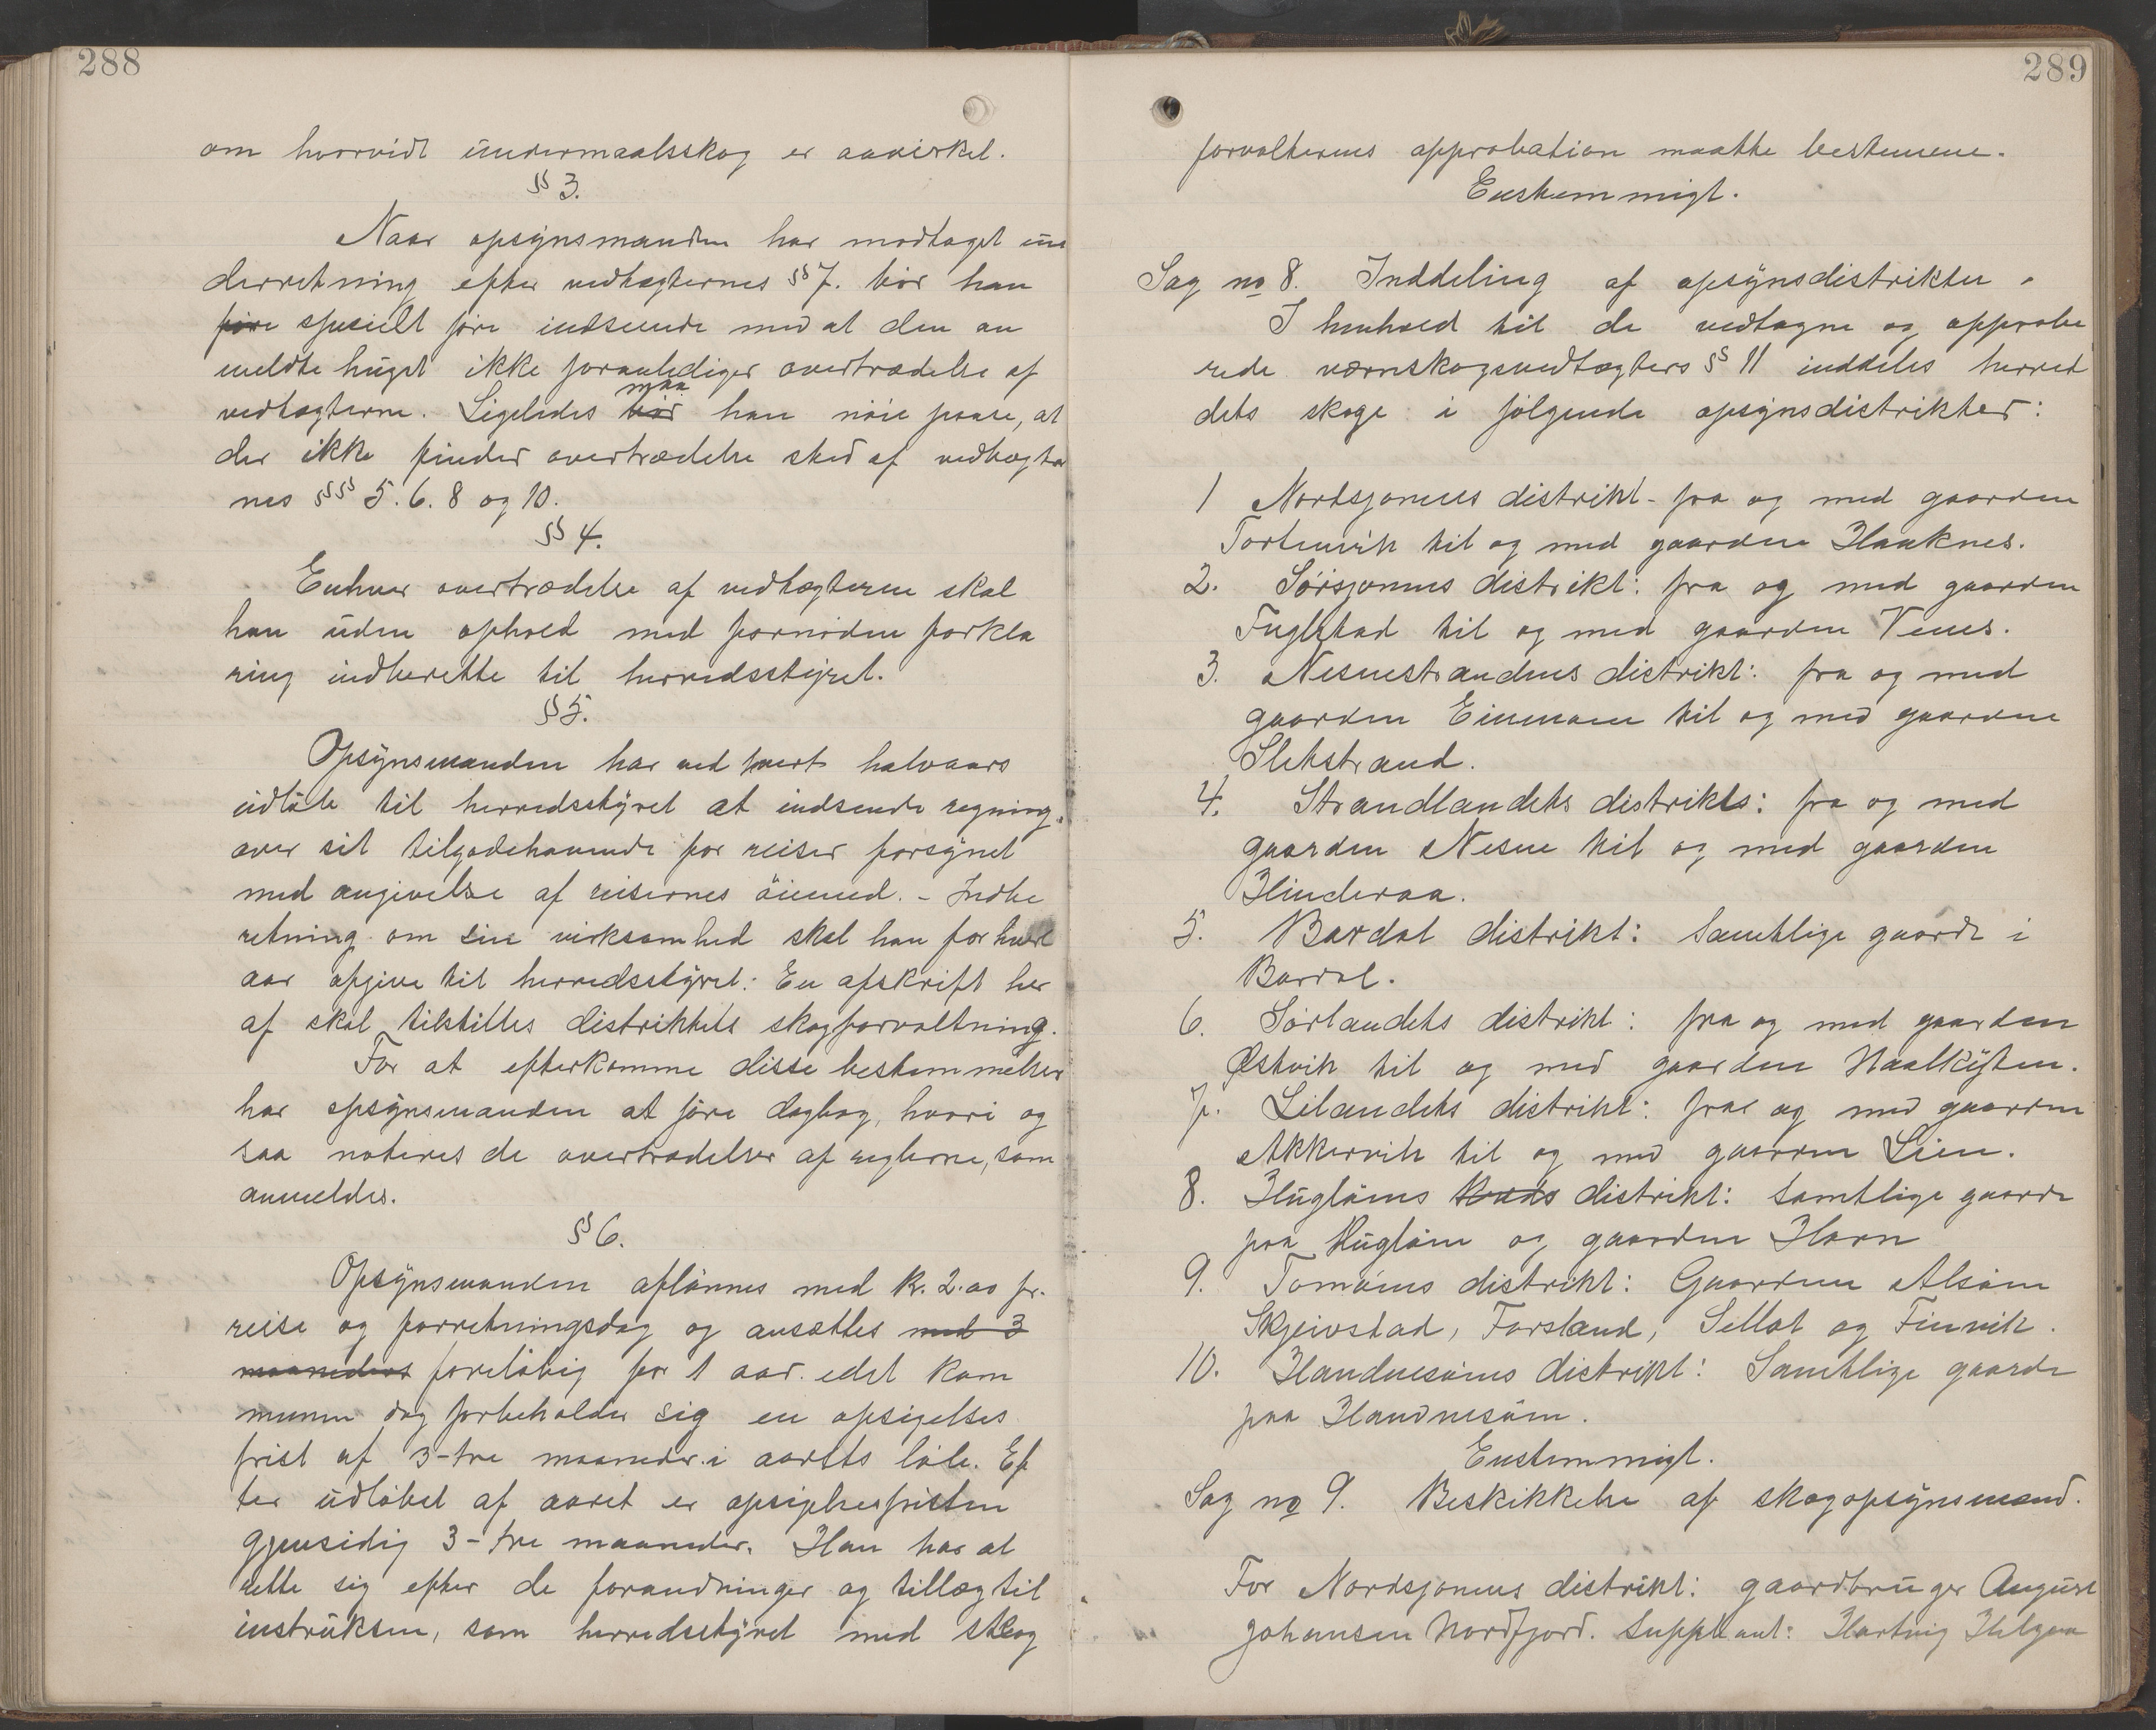 288
om hvorvidt undermaalsskog er aavirket.
§§ 3.
Naar opsynsmanden har modtaget un
derretning efter vedtægternes §§ 7. bör han
före specielt före indseende med at den an
meldte hugst ikke foranlediger overtrædelse af
vedtægterne. Ligeledes bör maa han nöie paase, at
der ikke finder overtrædelse sted af vedtægter
nes §§§ 5. 6. 8 og 10.
§§ 4.
Enhver overtrædelse af vedtægterne skal
han uden ophold med fornöden forkla
ring indberette til herredsstyret.
§§ 5.
Opsynsmanden har ved hvert halvaars
udlöb til herredsstyret at indsende regning
over sit tilgodehavende for reiser forsynet
med angivelse af reisernes öiemed. - Indbe
retning om sin virksomhed skal han for hvert
aar afgive til herredsstyret: En afskrift her
af skal tilstilles distriktets skogforvaltning.
For at efterkomme disse bestemmelser
har opsynsmanden at före dagbog, hvori og
saa noteres de overtrædelser af reglerne, som
anmeldes.
§ 6.
Opsynsmanden aflönnes med kr. 2.00 pr.
reise og forretningsdag og ansættes med 3
maaneders forelöbig for 1 aar. edet kom
munen dog forbeholder sig en opsigelses
frist af 3-tre maaneder i aarets löb. Ef
ter udlöbet af aaret er opsigelsesfristen
gjensidig 3-tre maaneder. Han har at
rette sig efter de forandringer og tillæg til
instruksen, som herredsstyret med skog
289
forvalterens approbation maatte bestemme.
Enstemmigt.
Sag no 8. Inddeling af opsynsdistrikter.
I henhold til de vedtagne og approbe
rede værnskogsvedtægters § 11 inddeles herred
dets skoge i fölgende opsynsdistrikter:
1 Nordsjonens distrikt - fra og med gaarden
Tortenvik til og med gaarden Haaknes.
2. Sörsjonens distrikt: fra og med gaarden
Fuglstad til og med gaarden Venes.
3. Nesnestrandens distrikt: fra og med
gaarden Einmoen til og med gaarden
Sletstrand.
4. Strandlandets distrikts: fra og med
gaarden Nesne til og med gaarden
Hinderaa.
5. Bardal distrikt: Samtlige gaarde i
Bardal.
6. Sörlandets distrikt: fra og med gaarden
Østvik til og med gaarden Haalkyten.
7. Lilandets distrikt: fra og med gaarden
Akkervik til og med gaarden Lien.
8. Huglöens distrikt: Samtlige gaarde
paa Huglöen og gaarden Horn
9. Tomöens distrikt: Gaardene Alsöen
Skjeivstad, Forsland, Sellot og Finvik.
10. Handnesöens distrikt: Samtlige gaarde
paa Handnesöen.
Enstemmigt.
Sag no 9. Beskikkelse af skogopsynsmænd.
For Nordsjonens distrikt: gaardbruger August
Johansen Nordfjord. Suppleant: Hartvig Helgaa